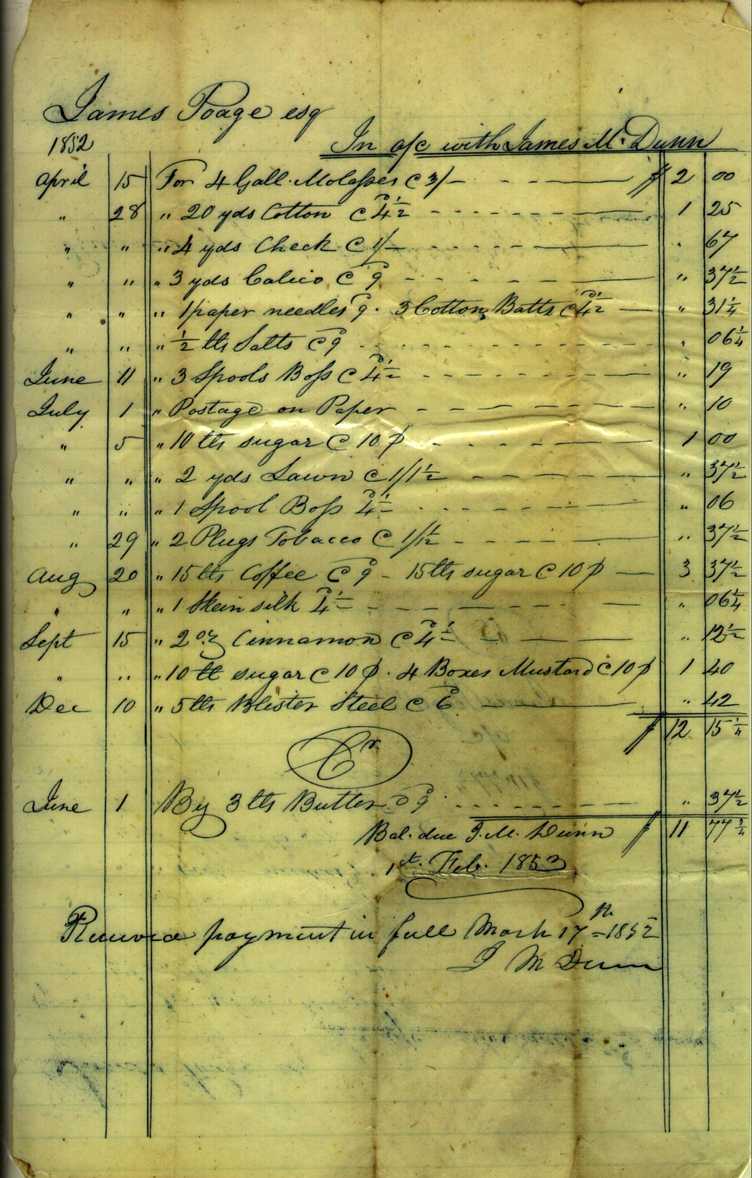 James Poage esq
1852 In a/c with James M. Dunn
April 15 For 4 Gall. Molasses @ 3/- $ 2 00
" 28 " 20 yds Cotton @ 4½ 1 25
" " " 4 yds Check @ 1/- " 67
" " " 3 yds Calico @ 9 " 37½
" " " 1 paper needles 9. 3 Cotton Batts @ 4½ " 31¼
" " " ½ lb Salts @ 9 " 06¼
June 11 " 3 Spools Boss @ 4½ " 19
July 1 " Postage on Paper " 10
" 5 " 10 lbs sugar @ 10¢ 1 00
" " " 2 yds Lawn @ 1/1½ " 37½
" " " 1 Spool Boss 4½ " 06
" 29 " 2 Plugs Tobacco @ 1/1½ " 37½
Aug 20 " 15 lbs Coffee @ 9 - 15 lbs sugar @ 10¢ 3 37½
" " " 1 Skein silk 4½ " 06¼
Sept 15 " 2 oz Cinnamon @ 4½ " 12½
" " " 10 lb sugar @ 10¢. 4 Boxes Mustard @ 10¢ 1 40
Dec 10 " 5 lbs Blister Steel @ 6 " 42
$ 12 15¼
Cr.
June 1 By 3 lbs Butter @ 9 " 37½
Bal. due J. M. Dunn $ 11 77¾
1st. Feb. 1853
Received payment in full March 17th
J M Dunn